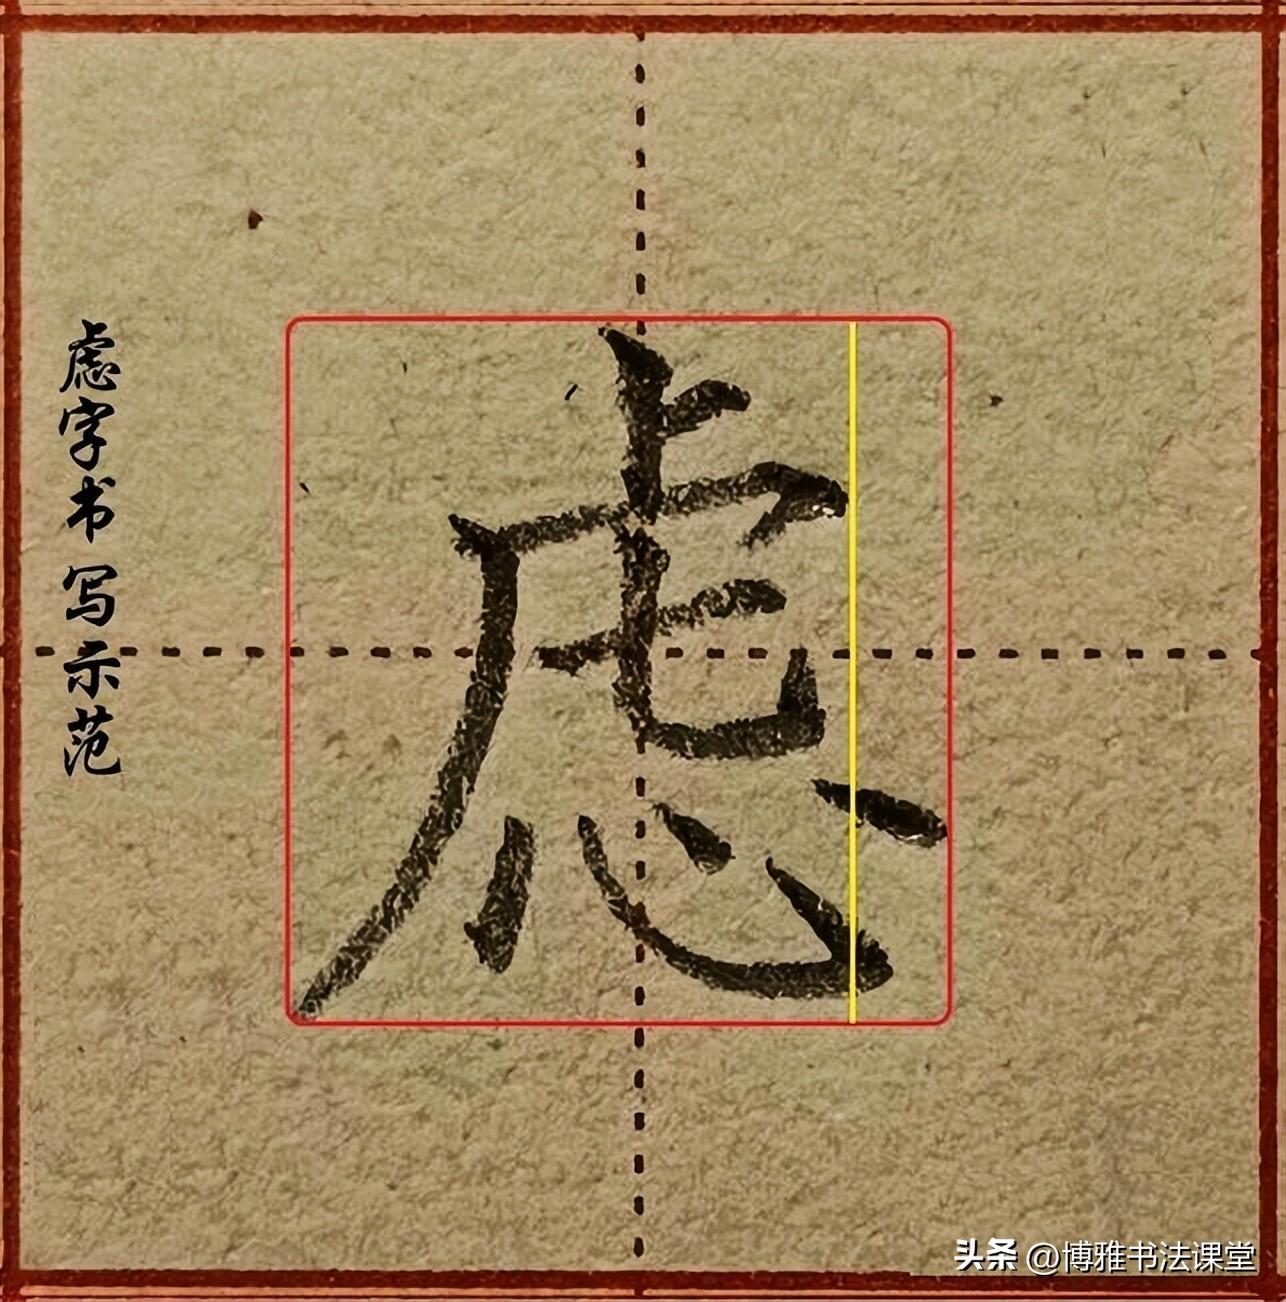 虑字书写示范
虑
头条 @博雅书法课堂